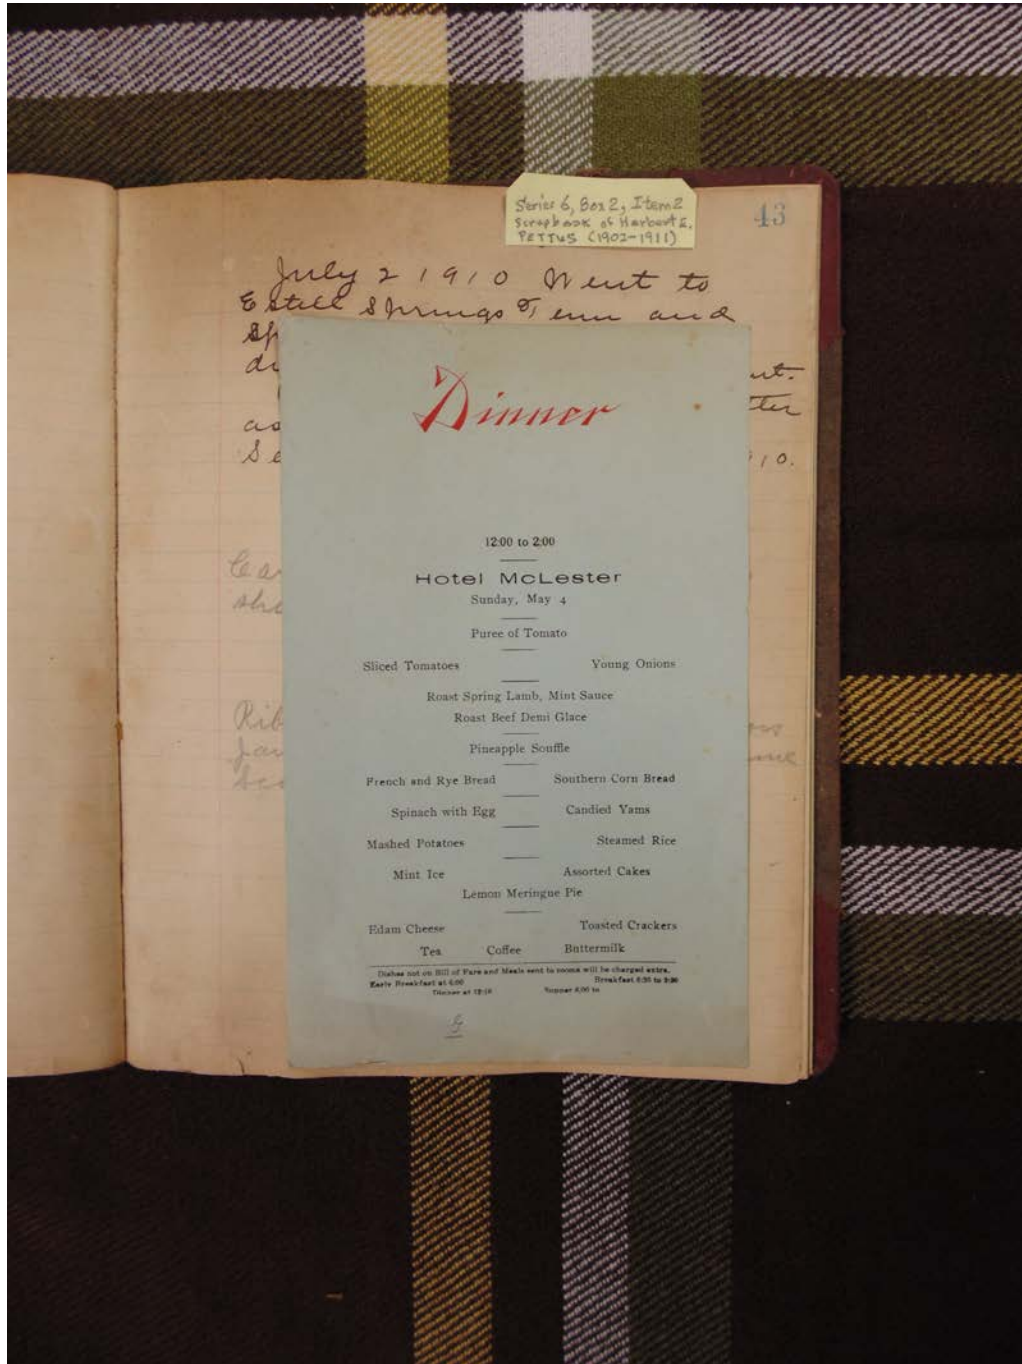 Series 6, Box 2, Item 2
Scrapbook of Herbert E.
PETTUS (1902-1911)
43
July 2 1910 Went to
Estill Springs Tenn and
Dinner
12:00 to 2:00
Hotel McLester
Sunday, May 4
Puree of Tomato
Sliced Tomatoes Young Onions
Roast Spring Lamb, Mint Sauce
Roast Beef Demi Glace
Pineapple Souffle
French and Rye Bread Southern Corn Bread
Spinach with Egg Candied Yams
Mashed Potatoes Steamed Rice
Mint Ice Assorted Cakes
Lemon Meringue Pie
Edam Cheese Toasted Crackers
Tea Coffee Buttermilk
Dishes not on Bill of Fare and Meals sent to rooms will be charged extra.
Early Breakfast at 6:00 Breakfast 6:30 to 9:30
Dinner at 12:10 Supper 6:00 to